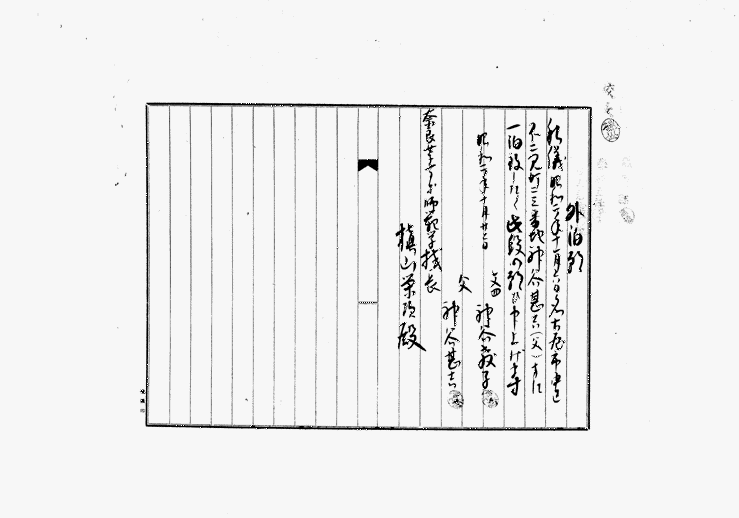 外泊願
私儀昭和二年十一月六日名古屋市中区
不二見町二三番地神谷甚吉(父)方に
一泊致したく此段御願ひ申上げます
昭和二年十月廿七日
文四 神谷教子
父 神谷甚吉
奈良女子高等師範学校長
槇山栄次殿